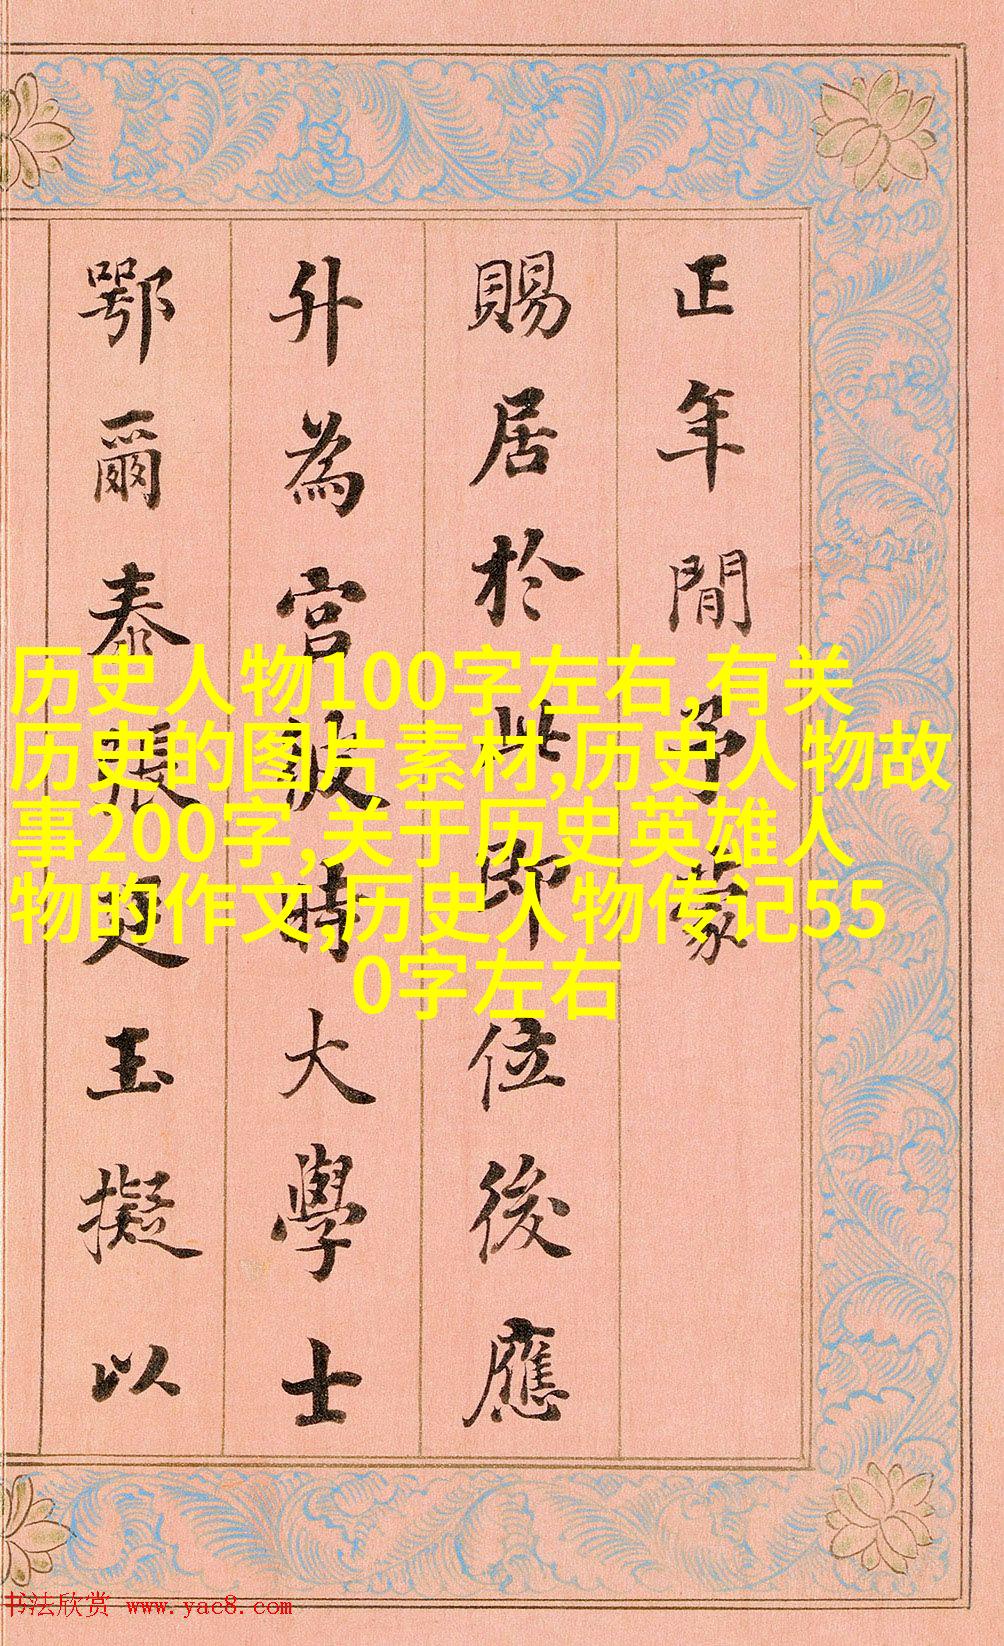 正年間予蒙
賜居於此即位後應
升為宮彼時大學士
鄂爾泰張廷玉擬以
历史人物100字左右,有关
历史的图片素材,历史人物故
事200字,关于历史英雄人
物的作文,历史人物传记55
0字左右
书法欣赏 www.yac8.com